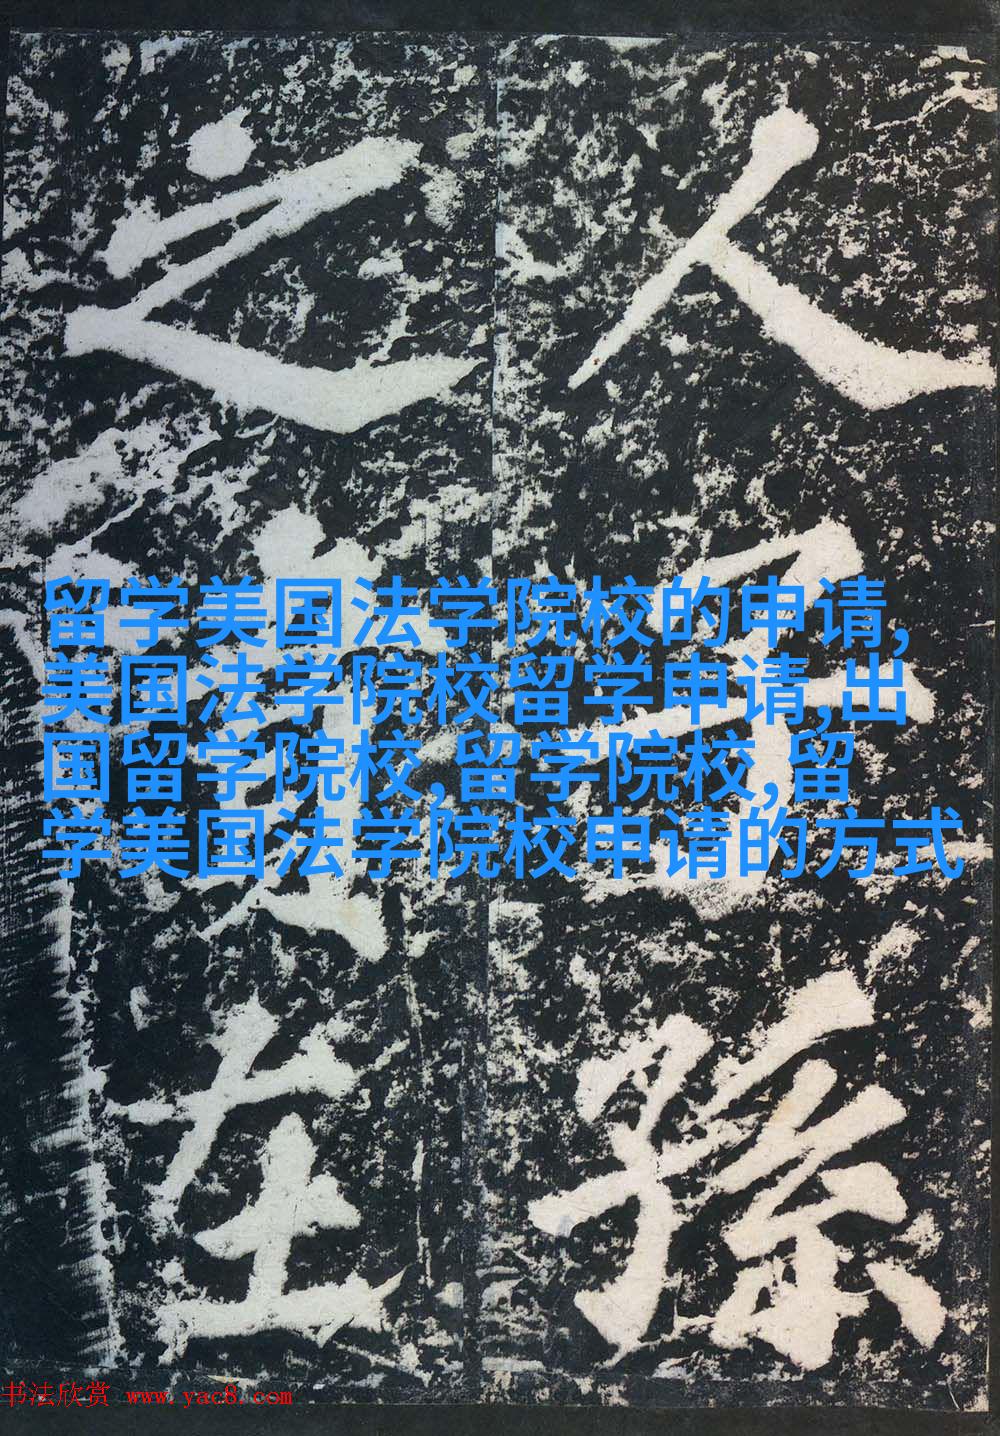 人孫
之在
留学美国法学院校的申请,
美国法学院校留学申请,出
国留学院校,留学院校,留
学美国法学院校申请的方式
书法欣赏 www.yac8.com